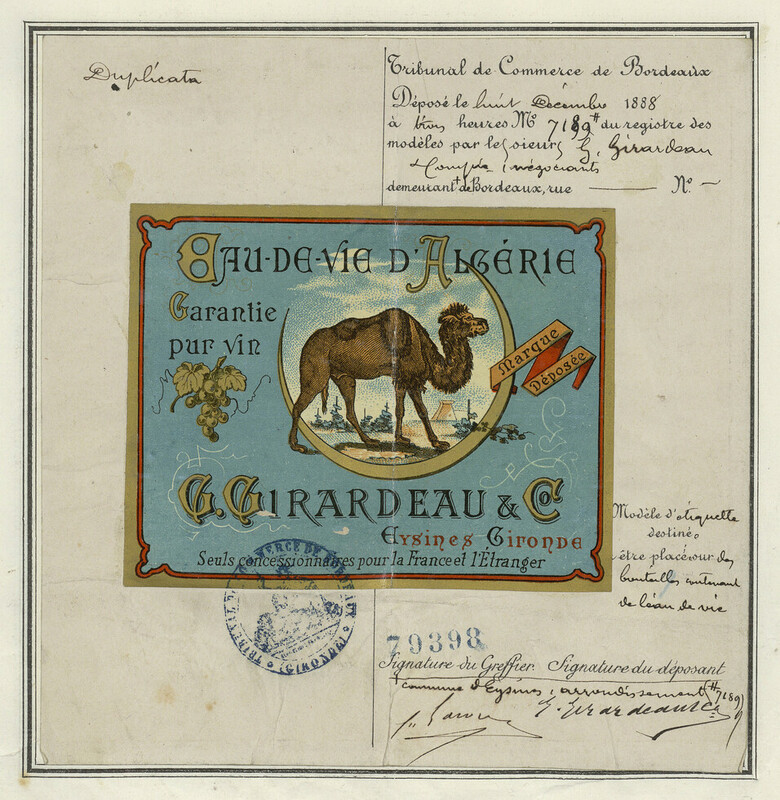 Duplicata
Tribunal de Commerce de Bordeaux
Déposé le huit Décembre 1888
à trois heures Nº 7189 # du registre des
modèles par le sieurs G. Girardeau
& Compie, négociants
demeurant à Bordeaux, rue — Nº —
EAU-DE-VIE D'ALGÉRIE
Garantie
pur vin
Marque
Déposée
G. GIRARDEAU & Cº
Eysines Gironde
Seuls concessionnaires pour la France et l'Étranger
Modèle d'étiquette
destinée
à être placé sur des
bouteilles contenant
de l'eau de vie
TRIBUNAL DE COMMERCE DE BORDEAUX
(GIRONDE)
79398
Signature du Greffier. Signature du déposant
+ commune d'Eysines, arrondissement (# 7189)
G. Girardeau & Cie